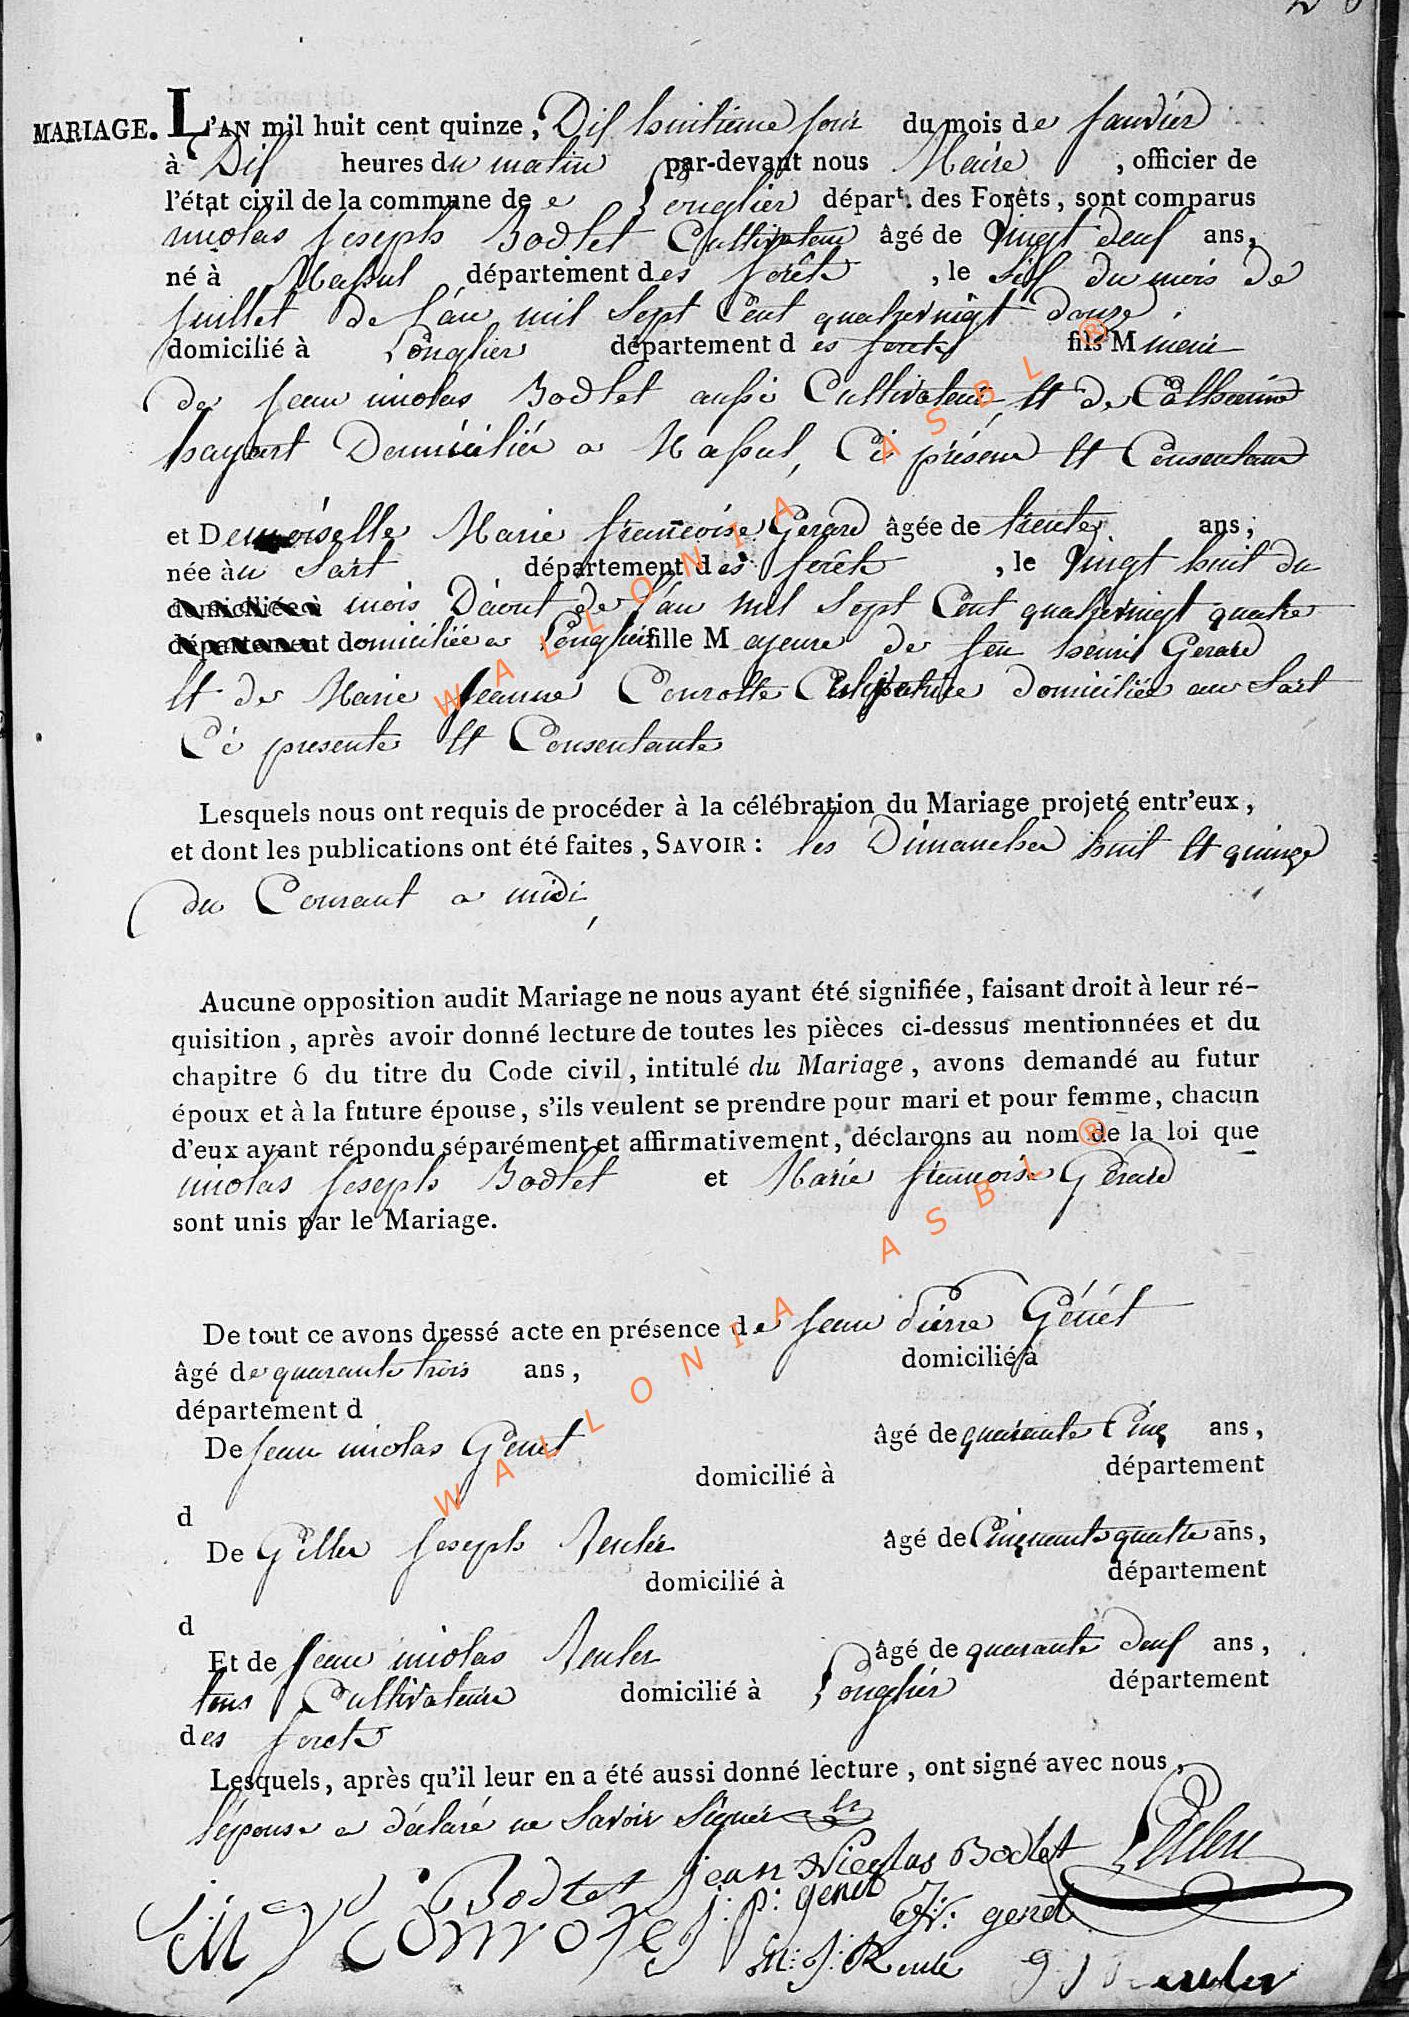 MARIAGE. L'AN mil huit cent quinze, Dix huitieme jour du mois de janvier
à Dix heures du matin par-devant nous Maire, officier de
l'état civil de la commune de Longlier départ. des Forêts, sont comparus
nicolas joseph Bodlet Cultivateur âgé de vingt deux ans,
né à Massul département des forêts, le six du mois de
juillet de l'an mil sept cent quatrevingt douze
domicilié à Longlier département des forets fils M ineur
de jean nicolas Bodlet aussi Cultivateur et de Catherine
hayart Domicilié a Massul, Ci présent et Consentant
et Demoiselle Marie françoise Gerard âgée de trente ans,
née au Sart département des forêts, le vingt huit du
domiciliée à mois D'aout de l'an mil sept Cent quatrevingt quatre
département domiciliée a Longlier fille M ajeure de feu henri Gerard
et de Marie jeanne Conrotte Cultivatrice domiciliée au Sart
Ci presente et Consentante
Lesquels nous ont requis de procéder à la célébration du Mariage projeté entr'eux,
et dont les publications ont été faites, SAVOIR : les Dimanches huit et quinze
du Courant a midi,
Aucune opposition audit Mariage ne nous ayant été signifiée, faisant droit à leur ré-
quisition, après avoir donné lecture de toutes les pièces ci-dessus mentionnées et du
chapitre 6 du titre du Code civil, intitulé du Mariage, avons demandé au futur
époux et à la future épouse, s'ils veulent se prendre pour mari et pour femme, chacun
d'eux ayant répondu séparément et affirmativement, déclarons au nom de la loi que
nicolas joseph Bodlet et Marie françoise Gérard
sont unis par le Mariage.
De tout ce avons dressé acte en présence de jean Pierre Génét
âgé de quarante trois ans, domicilié à
département d
De jean nicolas Genet âgé de quarante Cinq ans,
domicilié à département
d
De Gilles joseph Reuler âgé de Cinquante quatre ans,
domicilié à département
d
Et de jean nicolas Reuler âgé de quarante deux ans,
tous Cultivateurs domicilié à Longlier département
des forets
Lesquels, après qu'il leur en a été aussi donné lecture, ont signé avec nous,
l'épouse a déclaré ne savoir signer
Bodlet jean Nicolas Bodlet
M j conrotte j: p: genet j: n: genet
WALLONIA ASBL ®
WALLONIA ASBL ®